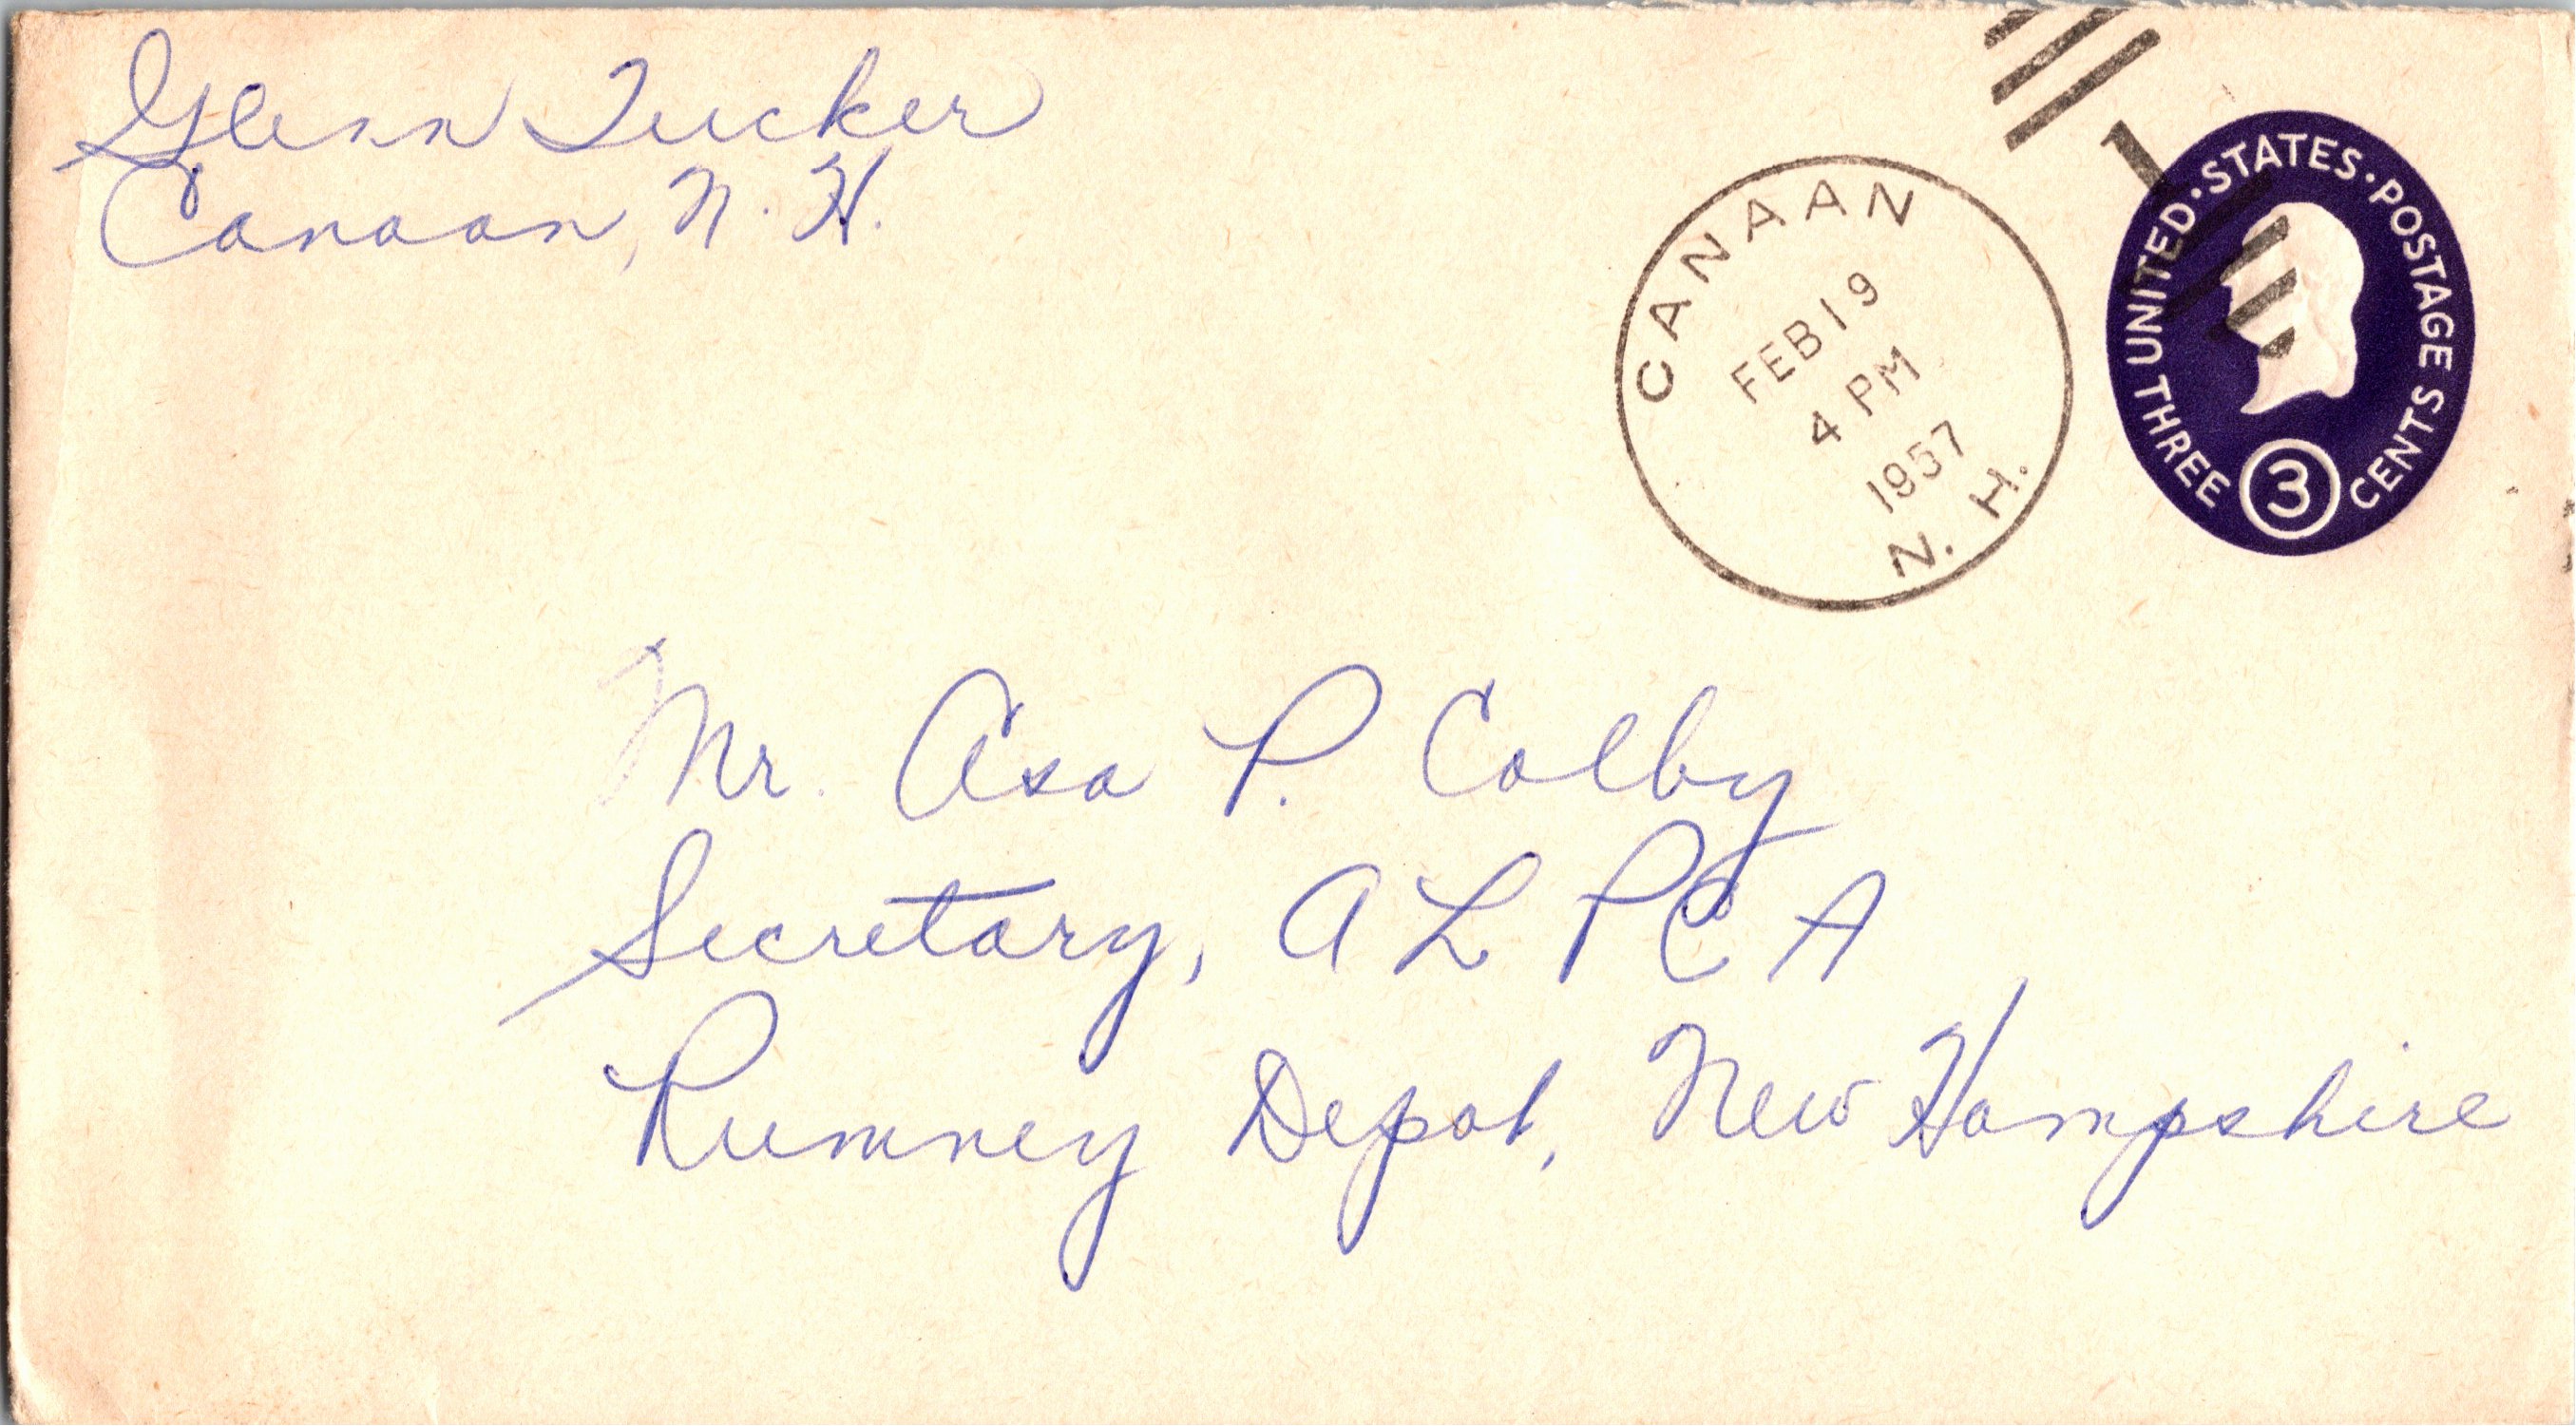 Glenn Tucker
Canaan, N. H.
CANAAN
FEB 19
4 PM
1957
N. H.
1
UNITED · STATES · POSTAGE
THREE 3 CENTS
Mr. Asa P. Colby
Secretary, A L P C A
Rumney Depot, New Hampshire